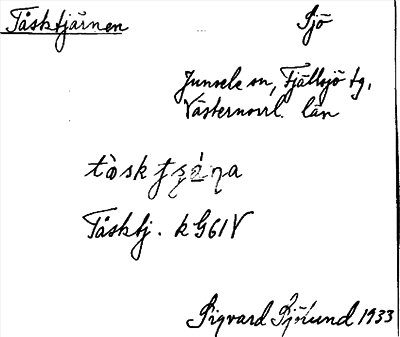 Tåsktjärnen
Sjö
Junsele sn, Fjällsjö tg,
Västernorrl. län
Tåsktj. k G61V
Sigvard Sjölund 1933